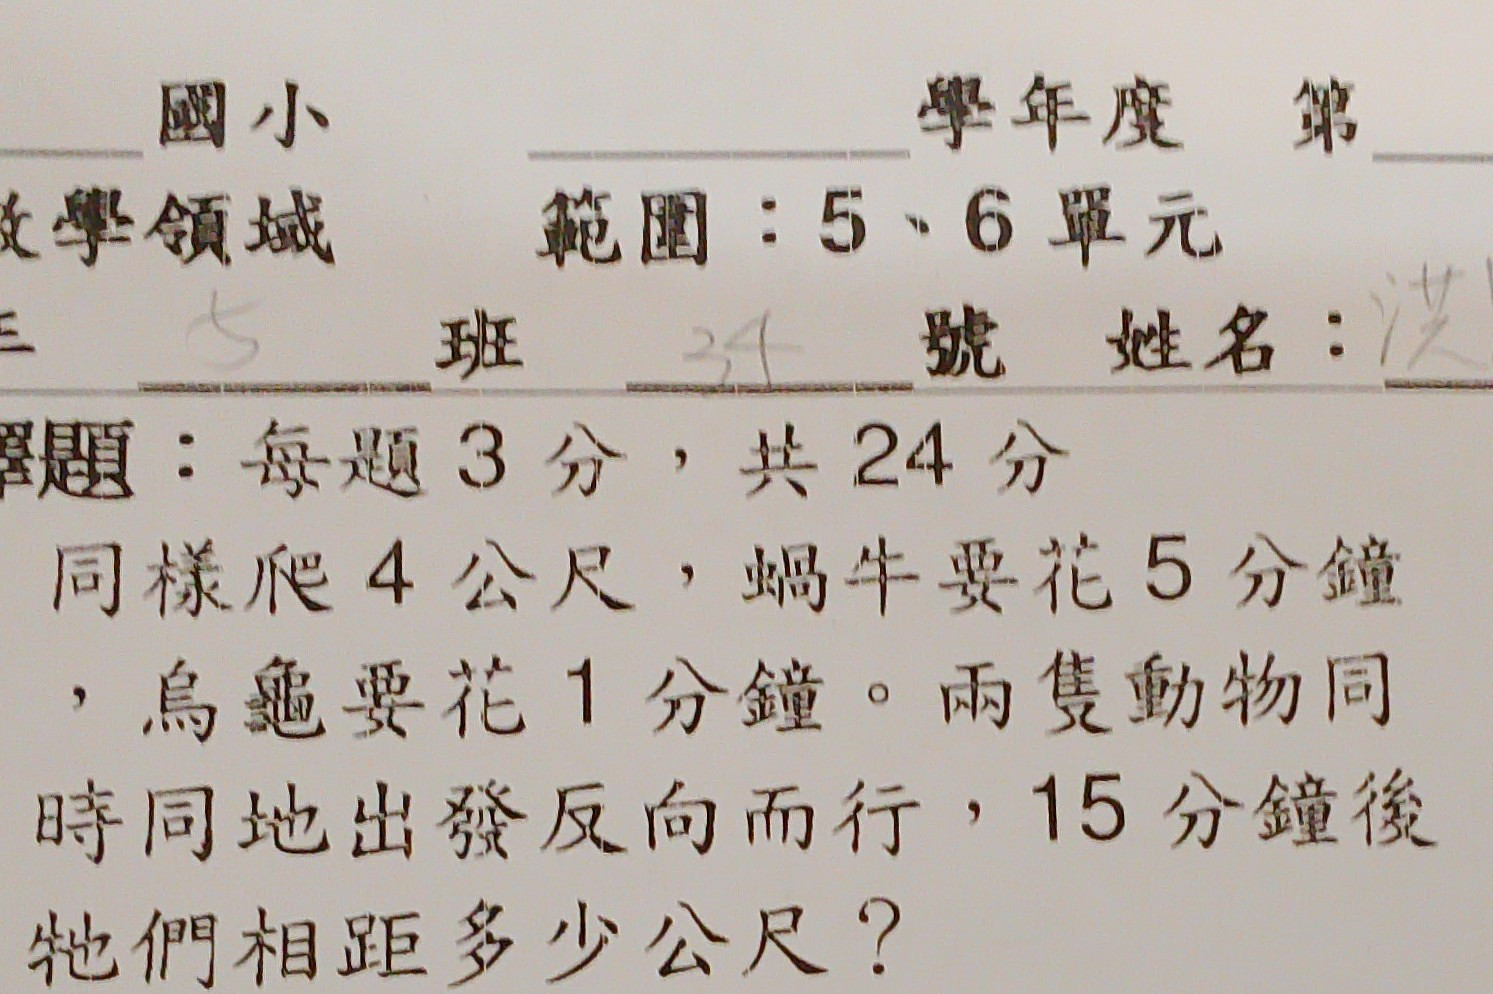 國小 學年度 第
數學領域 範圍：5、6 單元
年 5 班 34 號 姓名：洪
擇題：每題 3 分，共 24 分
同樣爬 4 公尺，蝸牛要花 5 分鐘
，烏龜要花 1 分鐘。兩隻動物同
時同地出發反向而行，15 分鐘後
牠們相距多少公尺？